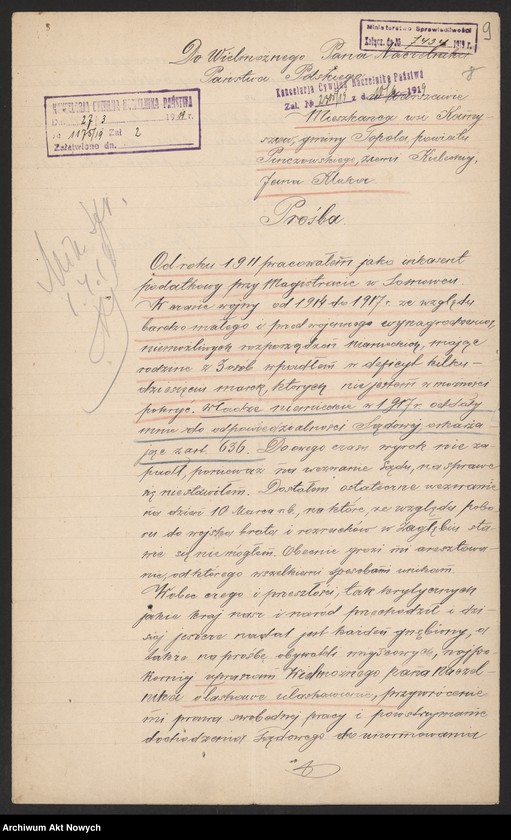 Ministerstwo Sprawiedliwości
Załącz. do № 1919 r.
9
Do Wielmożnego Pana Naczelnika
Państwa Polskiego
w Warszawie
Kancelarja Cywilna Naczelnika Państwa
Zał. № z d. 1919
KANCELARJA CYWILNA NACZELNIKA PAŃSTWA
Dn. 27. 3 19 r.
№ 1175/19 Zał 2
Załatwiono dn.
Mieszkańca wsi
gminy Topola, powiatu
Pinczowskiego, ziemi
Jana
Prośba.
Od roku 1911 pracowałem jako inkasent
podatkowy przy Magistracie w Sosnowcu
W czasie wojny od 1914 do 1917 r. ze względu
bardzo małego i przedwojennego wynagrodzenia,
niemożliwych rozporządzeń niemieckich, mając
rodzinę z 3 osób wpadłem w deficyt kilku-
dziesięciu marek, których nie jestem w możności
pokryć. Władze niemieckie w 1917 r. oddały
mnie do odpowiedzialności Sądowej, oskarża
jąc z art. 636. Do owego czasu wyrok nie za-
padł, ponieważ na wezwanie Sądu, na sprawę
się niestawiłem. Dostałem ostateczne wezwanie
na dzień 10 Marca rb, na które, ze względu pobo
ru do wojska brata i rozruchów w Zagłębiu sta-
wić się nie mogłem. Obecnie grozi mi aresztowa-
nie, od którego wszelkiemi sposobami unikam.
Wobec czego i przeszłości, tak krytycznych
jakie kraj nasz i naród przechodził i dzi-
siaj jeszcze nadal jest każden gnębiony, a
także na prośbę obywateli najpo-
korniej upraszam Wielmożnego Pana Naczel-
nika o łaskawe ułaskawienie, przywrócenie
mi prawa swobodnej pracy i powstrzymanie
dochodzenia Sądowego do unormowania
Archiwum Akt Nowych